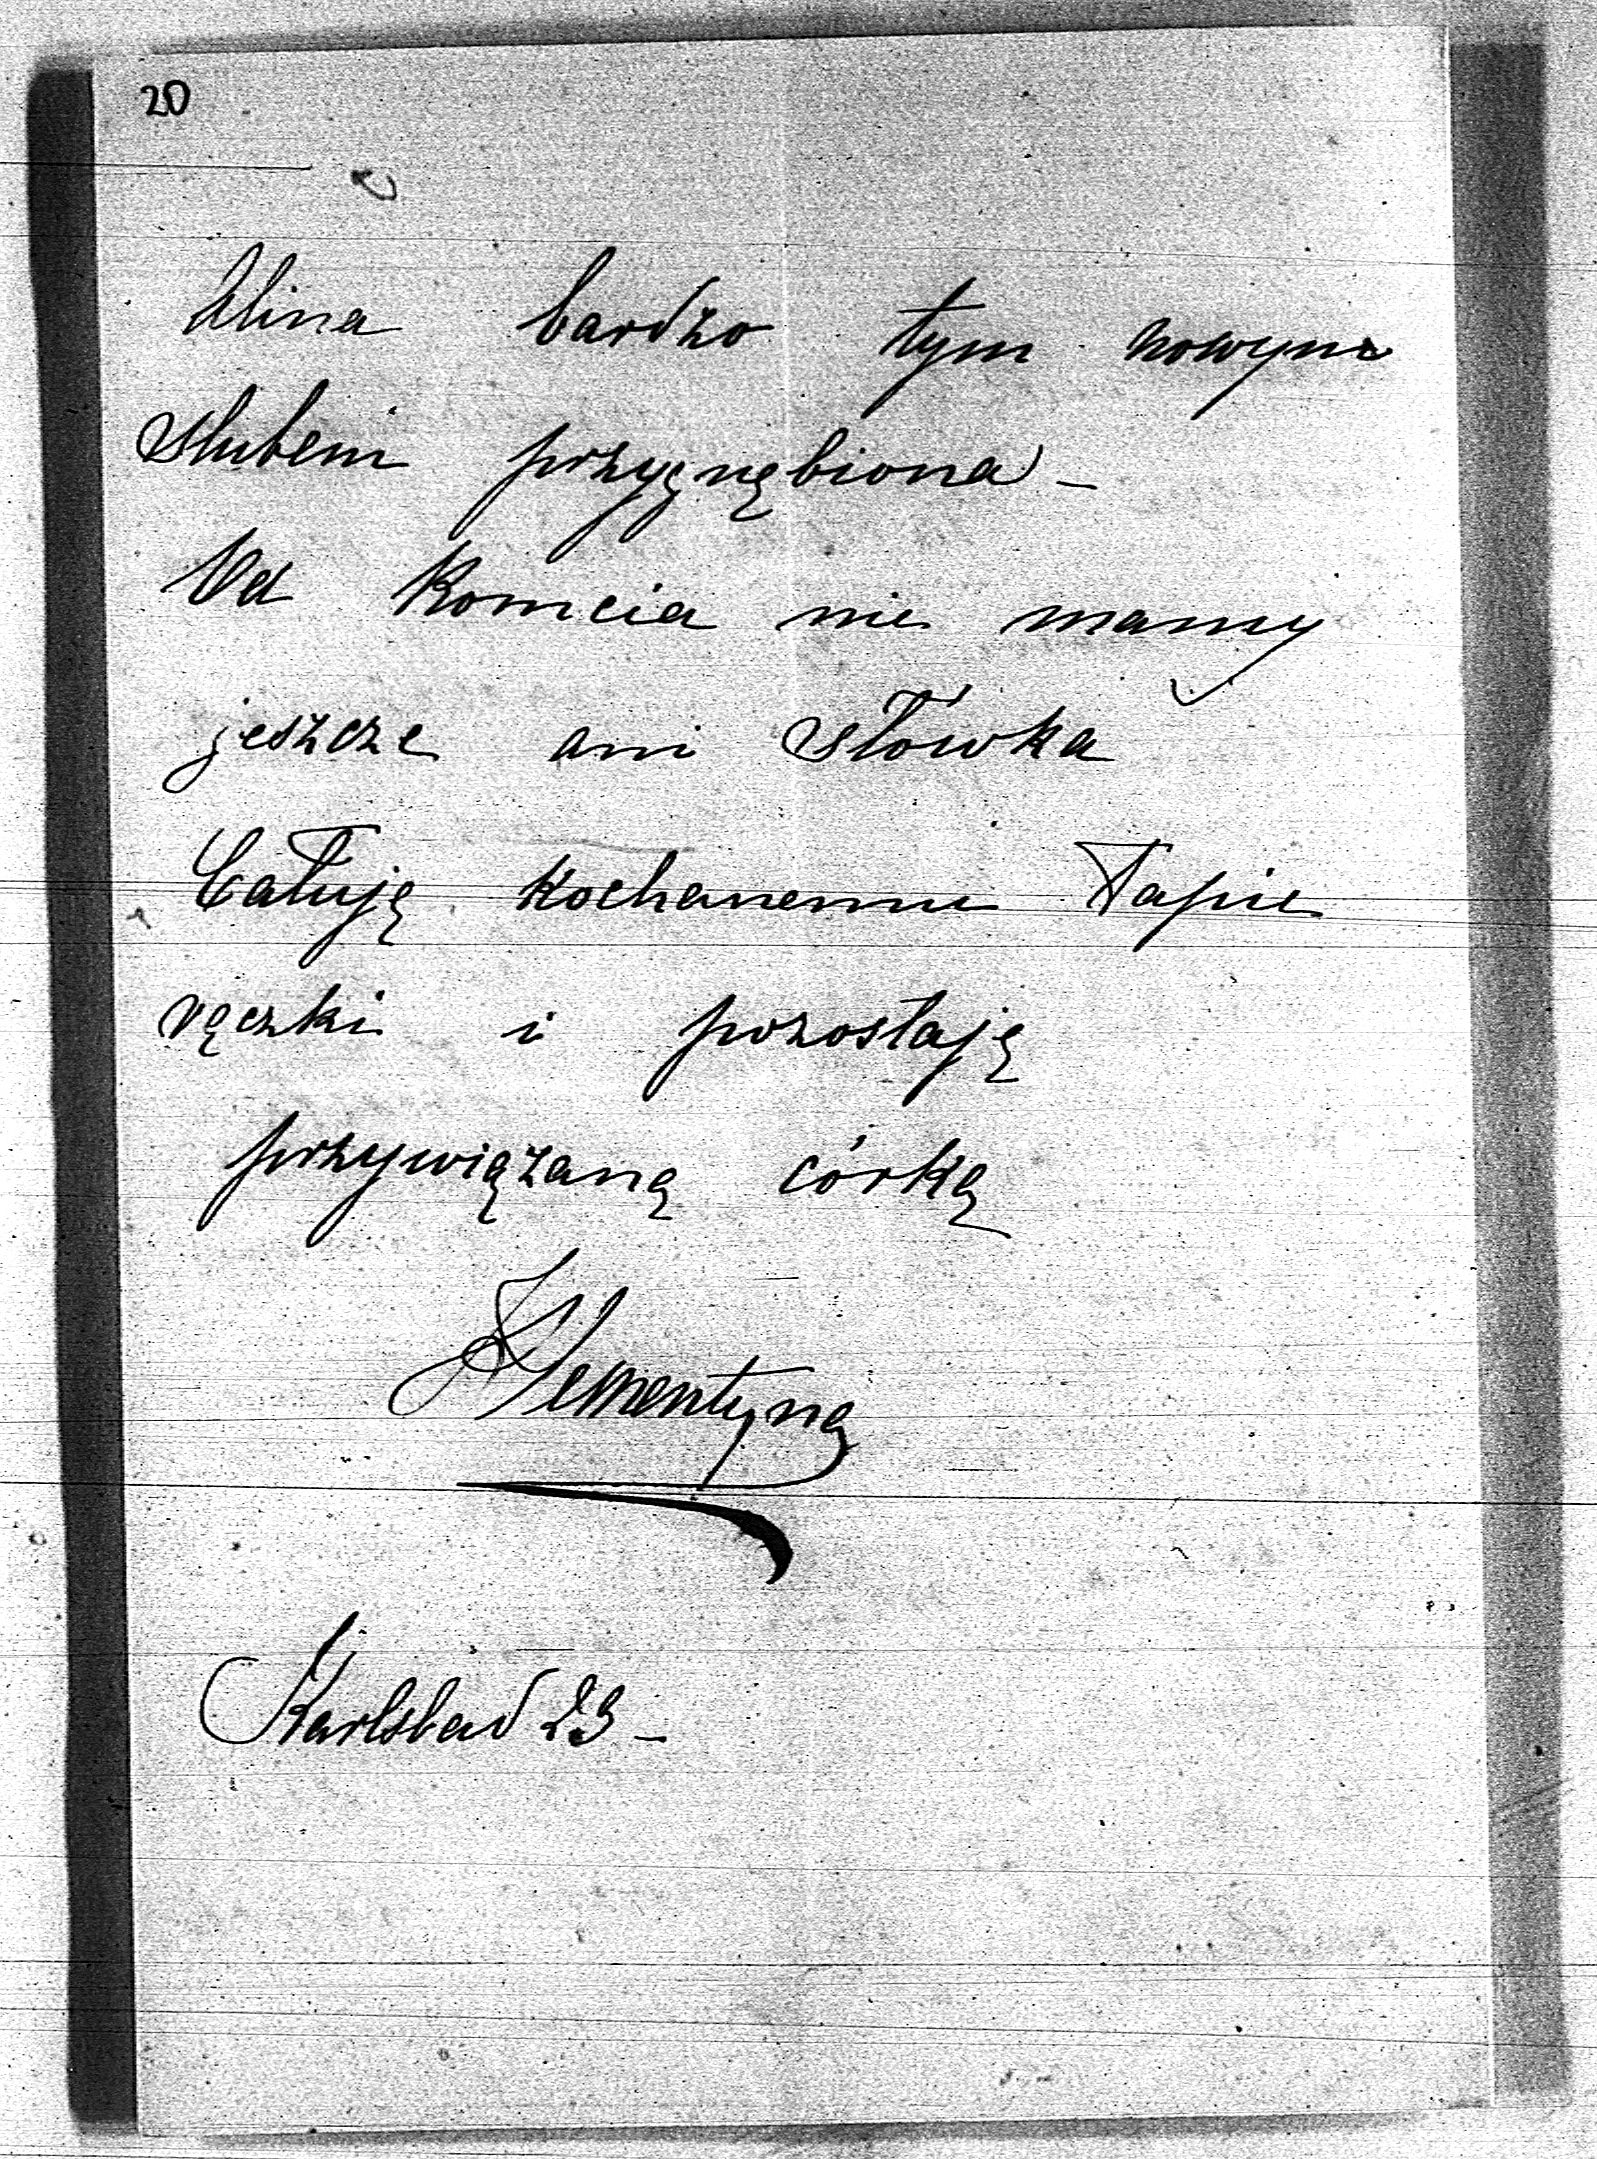 20
Alina bardzo tym nowym
slubem przygnębiona –
Od Romcia nie mamy
jeszcze ani słówka
Całuję kochanemu Papie
rączki i pozostaję
przywiązaną córką
Klementyną
Karlsbad 23 –